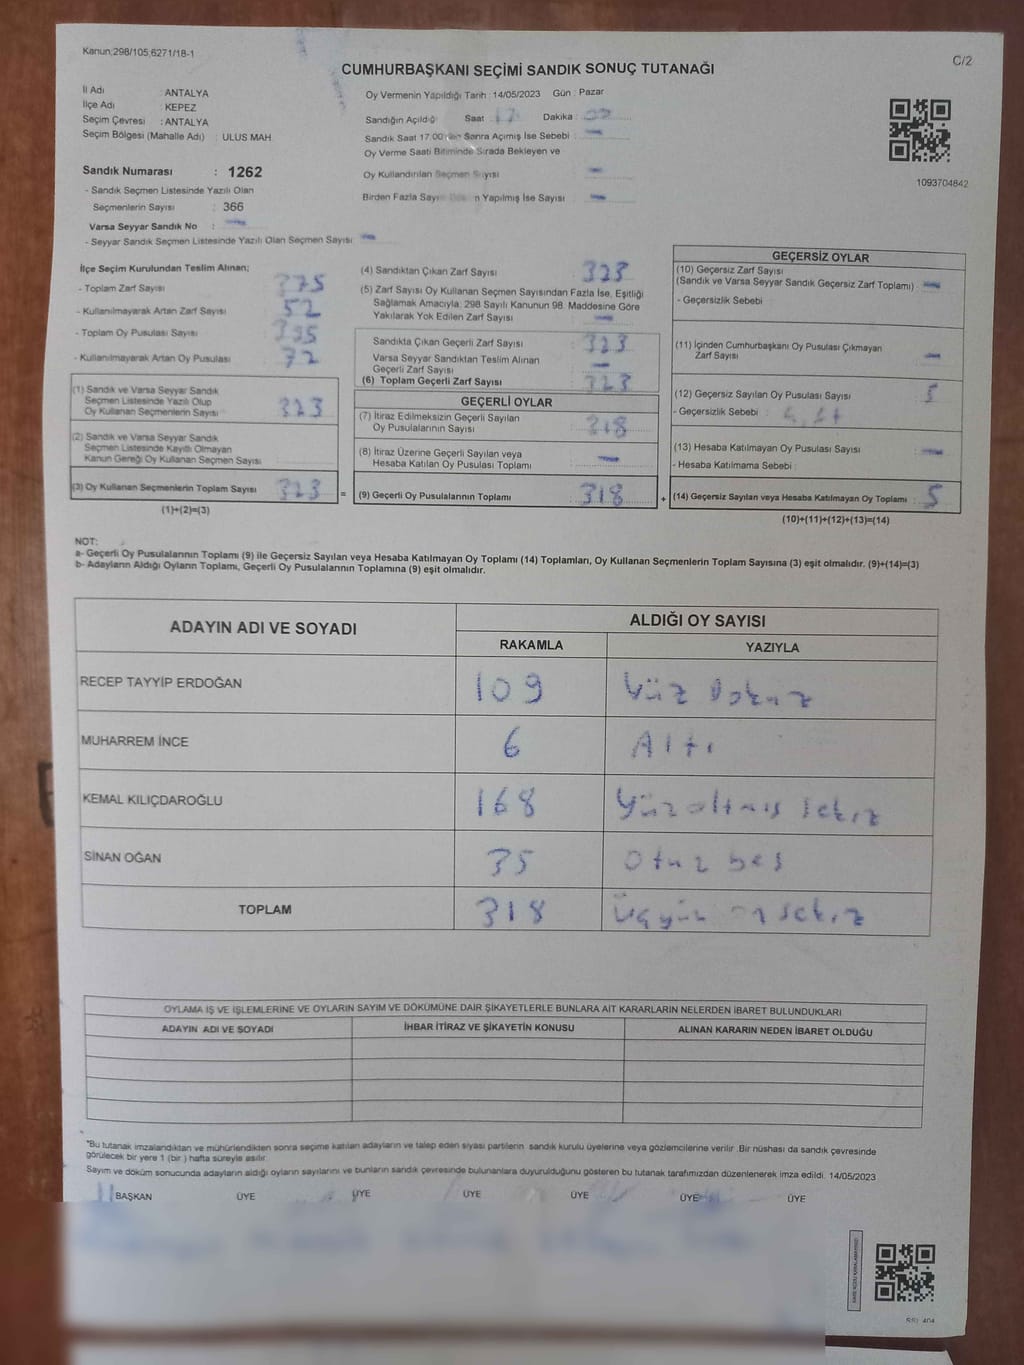 Kanun;298/105,6271/18-1
C/2
CUMHURBAŞKANI SEÇİMİ SANDIK SONUÇ TUTANAĞI
İl Adı : ANTALYA
İlçe Adı : KEPEZ
Seçim Çevresi : ANTALYA
Seçim Bölgesi (Mahalle Adı) : ULUS MAH.
Sandık Numarası : 1262
- Sandık Seçmen Listesinde Yazılı Olan
Seçmenlerin Sayısı : 366
Varsa Seyyar Sandık No : -
- Seyyar Sandık Seçmen Listesinde Yazılı Olan Seçmen Sayısı : -
Oy Vermenin Yapıldığı Tarih : 14/05/2023 Gün : Pazar
Sandığın Açıldığı Saat : 17 Dakika :
Sandık Saat 17.00'den Sonra Açımış İse Sebebi : -
Oy Verme Saati Bitiminde Sırada Bekleyen ve
Oy Kullandırılan Seçmen Sayısı : -
Birden Fazla Sayım Döküm Yapılmış İse Sayısı : -
1093704842
İlçe Seçim Kurulundan Teslim Alınan;
- Toplam Zarf Sayısı : 375
- Kullanılmayarak Artan Zarf Sayısı : 52
- Toplam Oy Pusulası Sayısı : 395
- Kullanılmayarak Artan Oy Pusulası : 72
(1) Sandık ve Varsa Seyyar Sandık
Seçmen Listesinde Yazılı Olup
Oy Kullanan Seçmenlerin Sayısı : 323
(2) Sandık ve Varsa Seyyar Sandık
Seçmen Listesinde Kayıtlı Olmayan
Kanun Gereği Oy Kullanan Seçmen Sayısı :
(3) Oy Kullanan Seçmenlerin Toplam Sayısı : 323 =
(1)+(2)=(3)
(4) Sandıktan Çıkan Zarf Sayısı : 323
(5) Zarf Sayısı Oy Kullanan Seçmen Sayısından Fazla İse, Eşitliği
Sağlamak Amacıyla; 298 Sayılı Kanunun 98. Maddesine Göre
Yakılarak Yok Edilen Zarf Sayısı : -
Sandıkta Çıkan Geçerli Zarf Sayısı : 323
Varsa Seyyar Sandıktan Teslim Alınan
Geçerli Zarf Sayısı : -
(6) Toplam Geçerli Zarf Sayısı : 323
GEÇERLİ OYLAR
(7) İtiraz Edilmeksizin Geçerli Sayılan
Oy Pusulalarının Sayısı : 318
(8) İtiraz Üzerine Geçerli Sayılan veya
Hesaba Katılan Oy Pusulası Toplamı : -
(9) Geçerli Oy Pusulalarının Toplamı : 318 +
GEÇERSİZ OYLAR
(10) Geçersiz Zarf Sayısı
(Sandık ve Varsa Seyyar Sandık Geçersiz Zarf Toplamı) : -
- Geçersizlik Sebebi :
(11) İçinden Cumhurbaşkanı Oy Pusulası Çıkmayan
Zarf Sayısı : -
(12) Geçersiz Sayılan Oy Pusulası Sayısı : 5
- Geçersizlik Sebebi :
(13) Hesaba Katılmayan Oy Pusulası Sayısı : -
- Hesaba Katılmama Sebebi :
(14) Geçersiz Sayılan veya Hesaba Katılmayan Oy Toplamı : 5
(10)+(11)+(12)+(13)=(14)
NOT:
a- Geçerli Oy Pusulalarının Toplamı (9) ile Geçersiz Sayılan veya Hesaba Katılmayan Oy Toplamı (14) Toplamları, Oy Kullanan Seçmenlerin Toplam Sayısına (3) eşit olmalıdır. (9)+(14)=(3)
b- Adayların Aldığı Oyların Toplamı, Geçerli Oy Pusulalarının Toplamına (9) eşit olmalıdır.
ADAYIN ADI VE SOYADI
ALDIĞI OY SAYISI
RAKAMLA YAZIYLA
RECEP TAYYİP ERDOĞAN 109 Yüz Dokuz
MUHARREM İNCE 6 Altı
KEMAL KILIÇDAROĞLU 168 Yüzaltmış sekiz
SİNAN OĞAN 35 Otuz beş
TOPLAM 318 Üçyüz on sekiz
OYLAMA İŞ VE İŞLEMLERİNE VE OYLARIN SAYIM VE DÖKÜMÜNE DAİR ŞİKAYETLERLE BUNLARA AİT KARARLARIN NELERDEN İBARET BULUNDUKLARI
ADAYIN ADI VE SOYADI İHBAR İTİRAZ VE ŞİKAYETİN KONUSU ALINAN KARARIN NEDEN İBARET OLDUĞU
*Bu tutanak imzalandıktan ve mühürlendikten sonra seçime katılan adayların ve talep eden siyasi partilerin sandık kurulu üyelerine veya gözlemcilerine verilir. Bir nüshası da sandık çevresinde
görülecek bir yere 1 (bir ) hafta süreyle asılır.
Sayım ve döküm sonucunda adayların aldığı oyların sayılarını ve bunların sandık çevresinde bulunanlara duyurulduğunu gösteren bu tutanak tarafımızdan düzenlenerek imza edildi. 14/05/2023
BAŞKAN ÜYE ÜYE ÜYE ÜYE ÜYE ÜYE